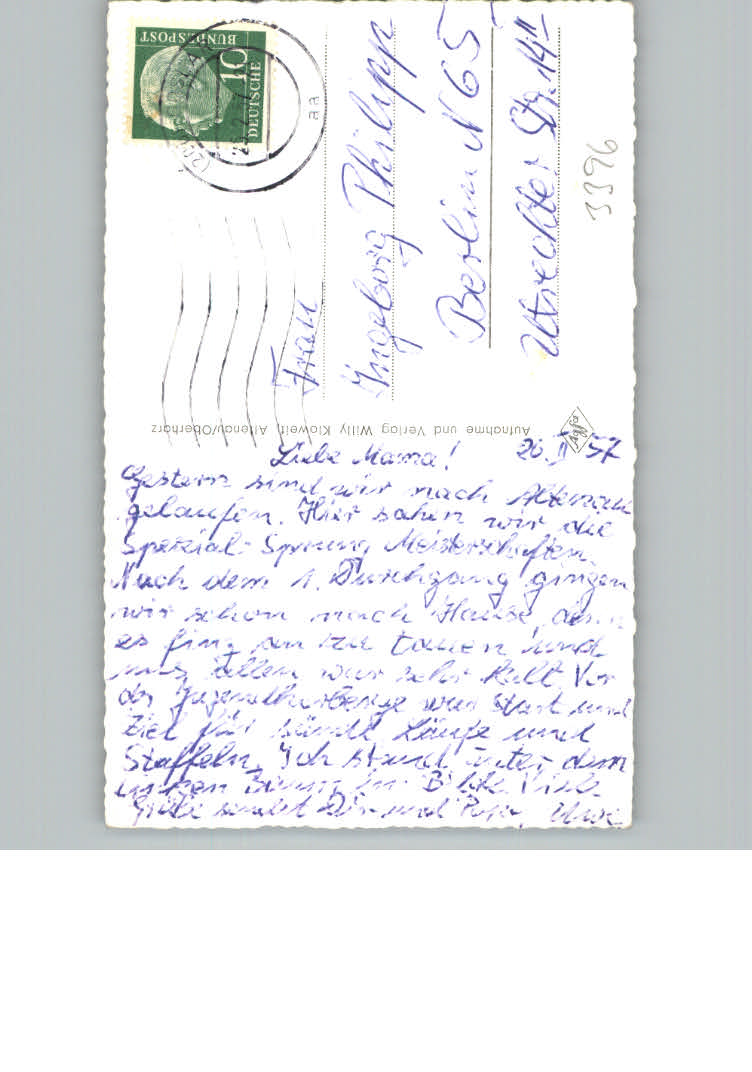 DEUTSCHE
BUNDESPOST
10
aa
Frau
Ingeborg Philipp
Berlin N 65
Utrechter Str. 14 II
3396
Aufnahme und Verlag Willy Kloweit, Altenau/Oberharz
Agfa
Liebe Mama! 26. II 57
Gestern sind wir nach Altenau
gelaufen. Hier sahen wir die
Spezial-Sprung Meisterschaften.
Nach dem 1. Durchgang gingen
wir schon nach Hause, denn
es fing an zu tauen und
uns allen war sehr kalt. Vor
der Jugendherberge war Start und
Ziel für sämtl. Läufe und
Staffeln. Ich stand unter dem
linken Baum im Bilde. Viele
Grüße sendet Dir und Papa, Uwe